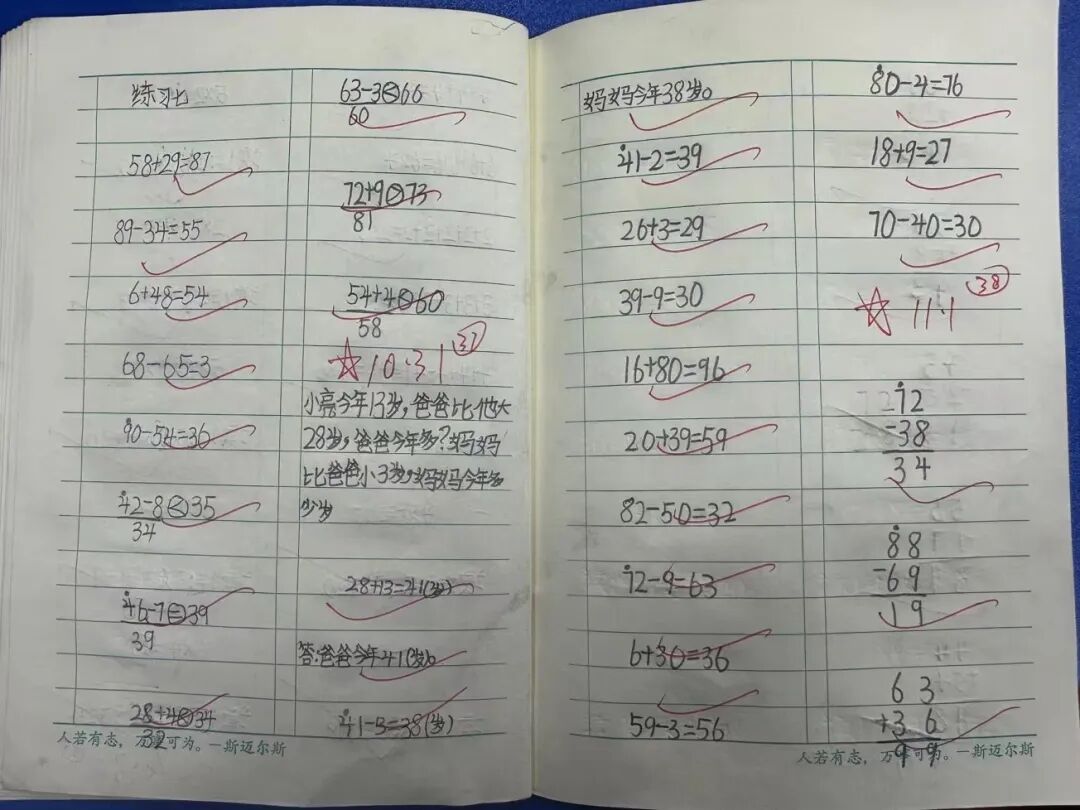 练习七
58+29=87
89-34=55
6+48=54
68-65=3
90-54=36
42-8<35
34
46-7=39
39
28+4<34
32
人若有志，万事可为。—斯迈尔斯
63-3<66
60
72+9>73
81
54+4<60
58
☆10.31
37
小亮今年13岁，爸爸比他大
28岁，爸爸今年多？妈妈
比爸爸小3岁，妈妈今年多
少岁
28+13=41(岁)
答:爸爸今年41岁。
41-3=38(岁)
妈妈今年38岁。
41-2=39
26+3=29
39-9=30
16+80=96
20+39=59
82-50=32
72-9=63
6+30=36
59-3=56
80-4=76
18+9=27
70-40=30
38
☆11.1
72
-38
34
88
-69
19
63
+36
99
人若有志，万事可为。—斯迈尔斯